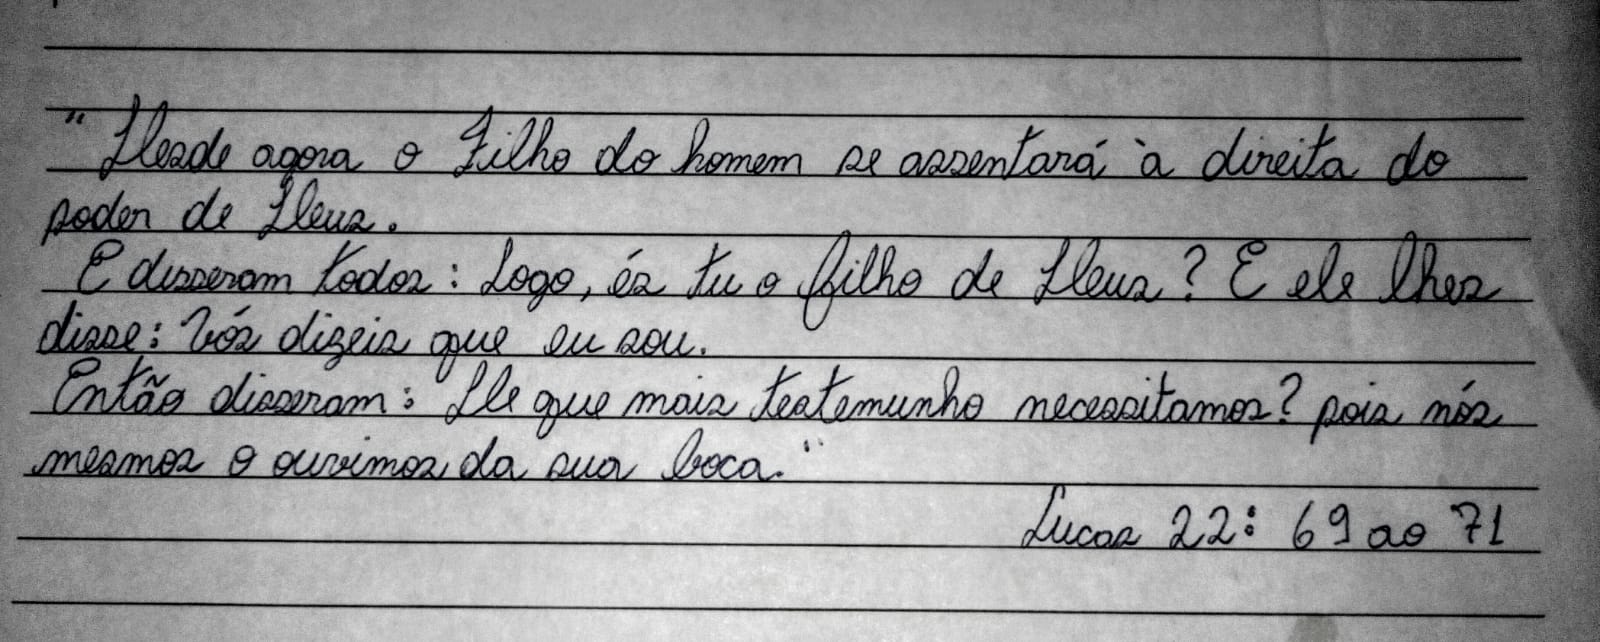 "Desde agora o Filho do homem se assentará à direita do
poder de Deus.
E disseram todos: Logo, és tu o filho de Deus? E ele lhes
disse: Vós dizeis que eu sou.
Então disseram: De que mais testemunho necessitamos? pois nós
mesmos o ouvimos da sua boca."
Lucas 22: 69 ao 71